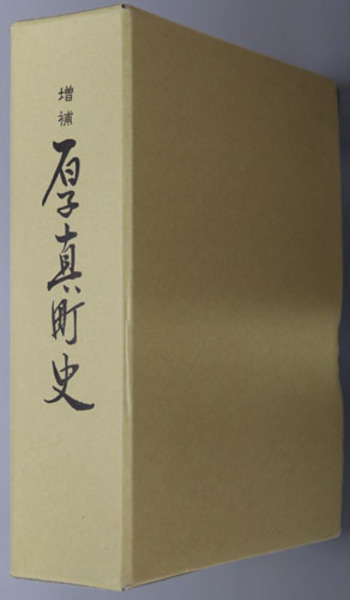 増補
厚真町史